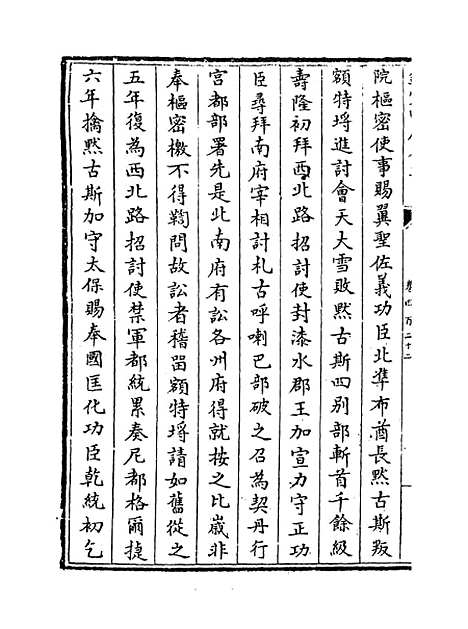 院樞密使事賜翼聖佐義功臣北準布酋長黙古斯叛
額特埒進討會天大雪敗黙古斯四别部斬首千餘級
壽隆初拜西北路招討使封漆水郡王加宣力守正功
臣尋拜南府宰相討札古呼喇巴部破之召為契丹行
宫都部署先是北南府有訟各州府得就按之比嵗非
奉樞密檄不得鞫問故訟者稽留額特埒請如舊從之
五年復為西北路招討使禁軍都統累奏尼都格爾捷
六年擒黙古斯加守太保賜奉國匡化功臣乾統初乞
卷四百二十二